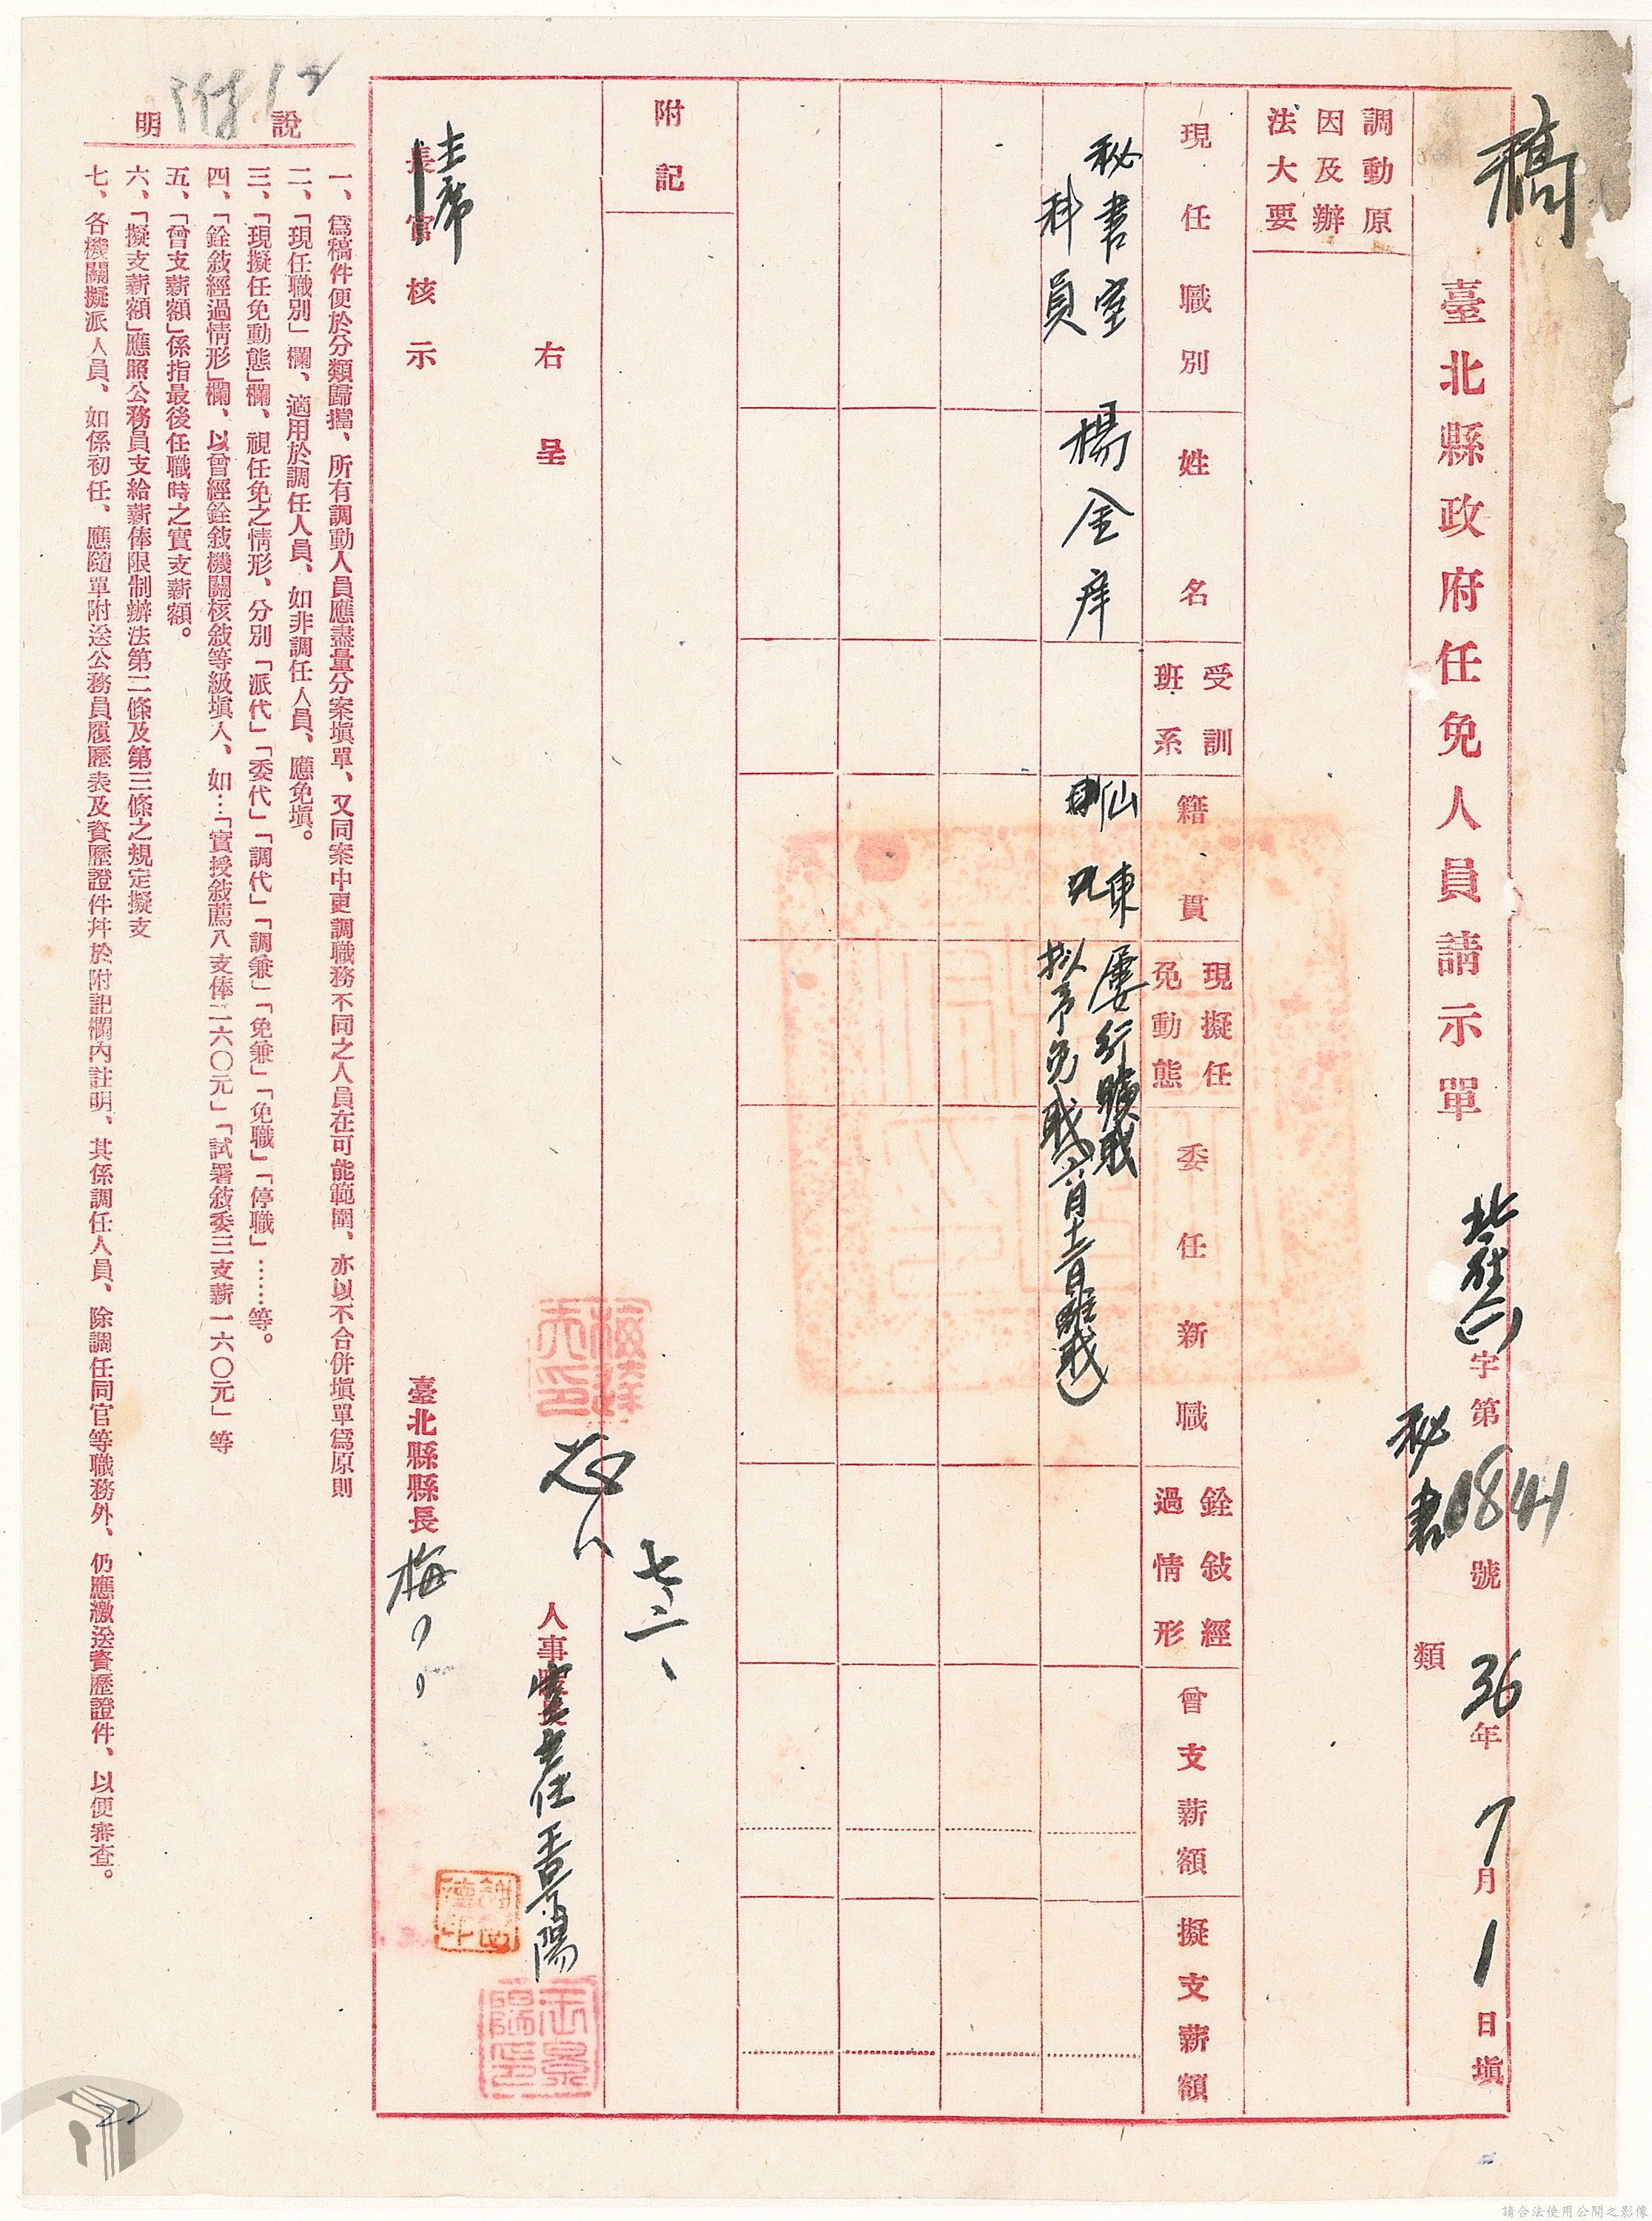 稿
臺北縣政府任免人員請示單
字第1841號
36年7月1日填
秘書類
調動原因及辦法大要
現任職別
姓名
受訓班系
籍貫
現擬任免動態
委任新職
銓敘經過情形
曾支薪額
擬支薪額
秘書室
科員
楊金庠
山東
屢行曠職
擬予免職(六月十二日離職)
附記
七、二、
右呈
人事室主任王景陽
主席
長官核示
臺北縣縣長梅
附12
說明
一、為稿件便於分類歸檔、所有調動人員應盡量分案填單、又同案中更調職務不同之人員在可能範圍、亦以不合併填單為原則
二、「現任職別」欄、適用於調任人員、如非調任人員、應免填。
三、「現擬任免動態」欄、視任免之情形、分別「派代」「委代」「調代」「調兼」「免兼」「免職」「停職」……等。
四、「銓敘經過情形」欄、以曾經銓敘機關核敘等級填入、如…「實授敘薦八支俸二六〇元」「試署敘委三支薪一六〇元」等
五、「曾支薪額」係指最後任職時之實支薪額。
六、「擬支薪額」應照公務員支給薪俸限制辦法第二條及第三條之規定擬支
七、各機關擬派人員、如係初任、應隨單附送公務員履歷表及資歷證件幷於附記欄內註明、其係調任人員、除調任同官等職務外、仍應繳送資歷證件、以便審查。
22
請合法使用公開之影像